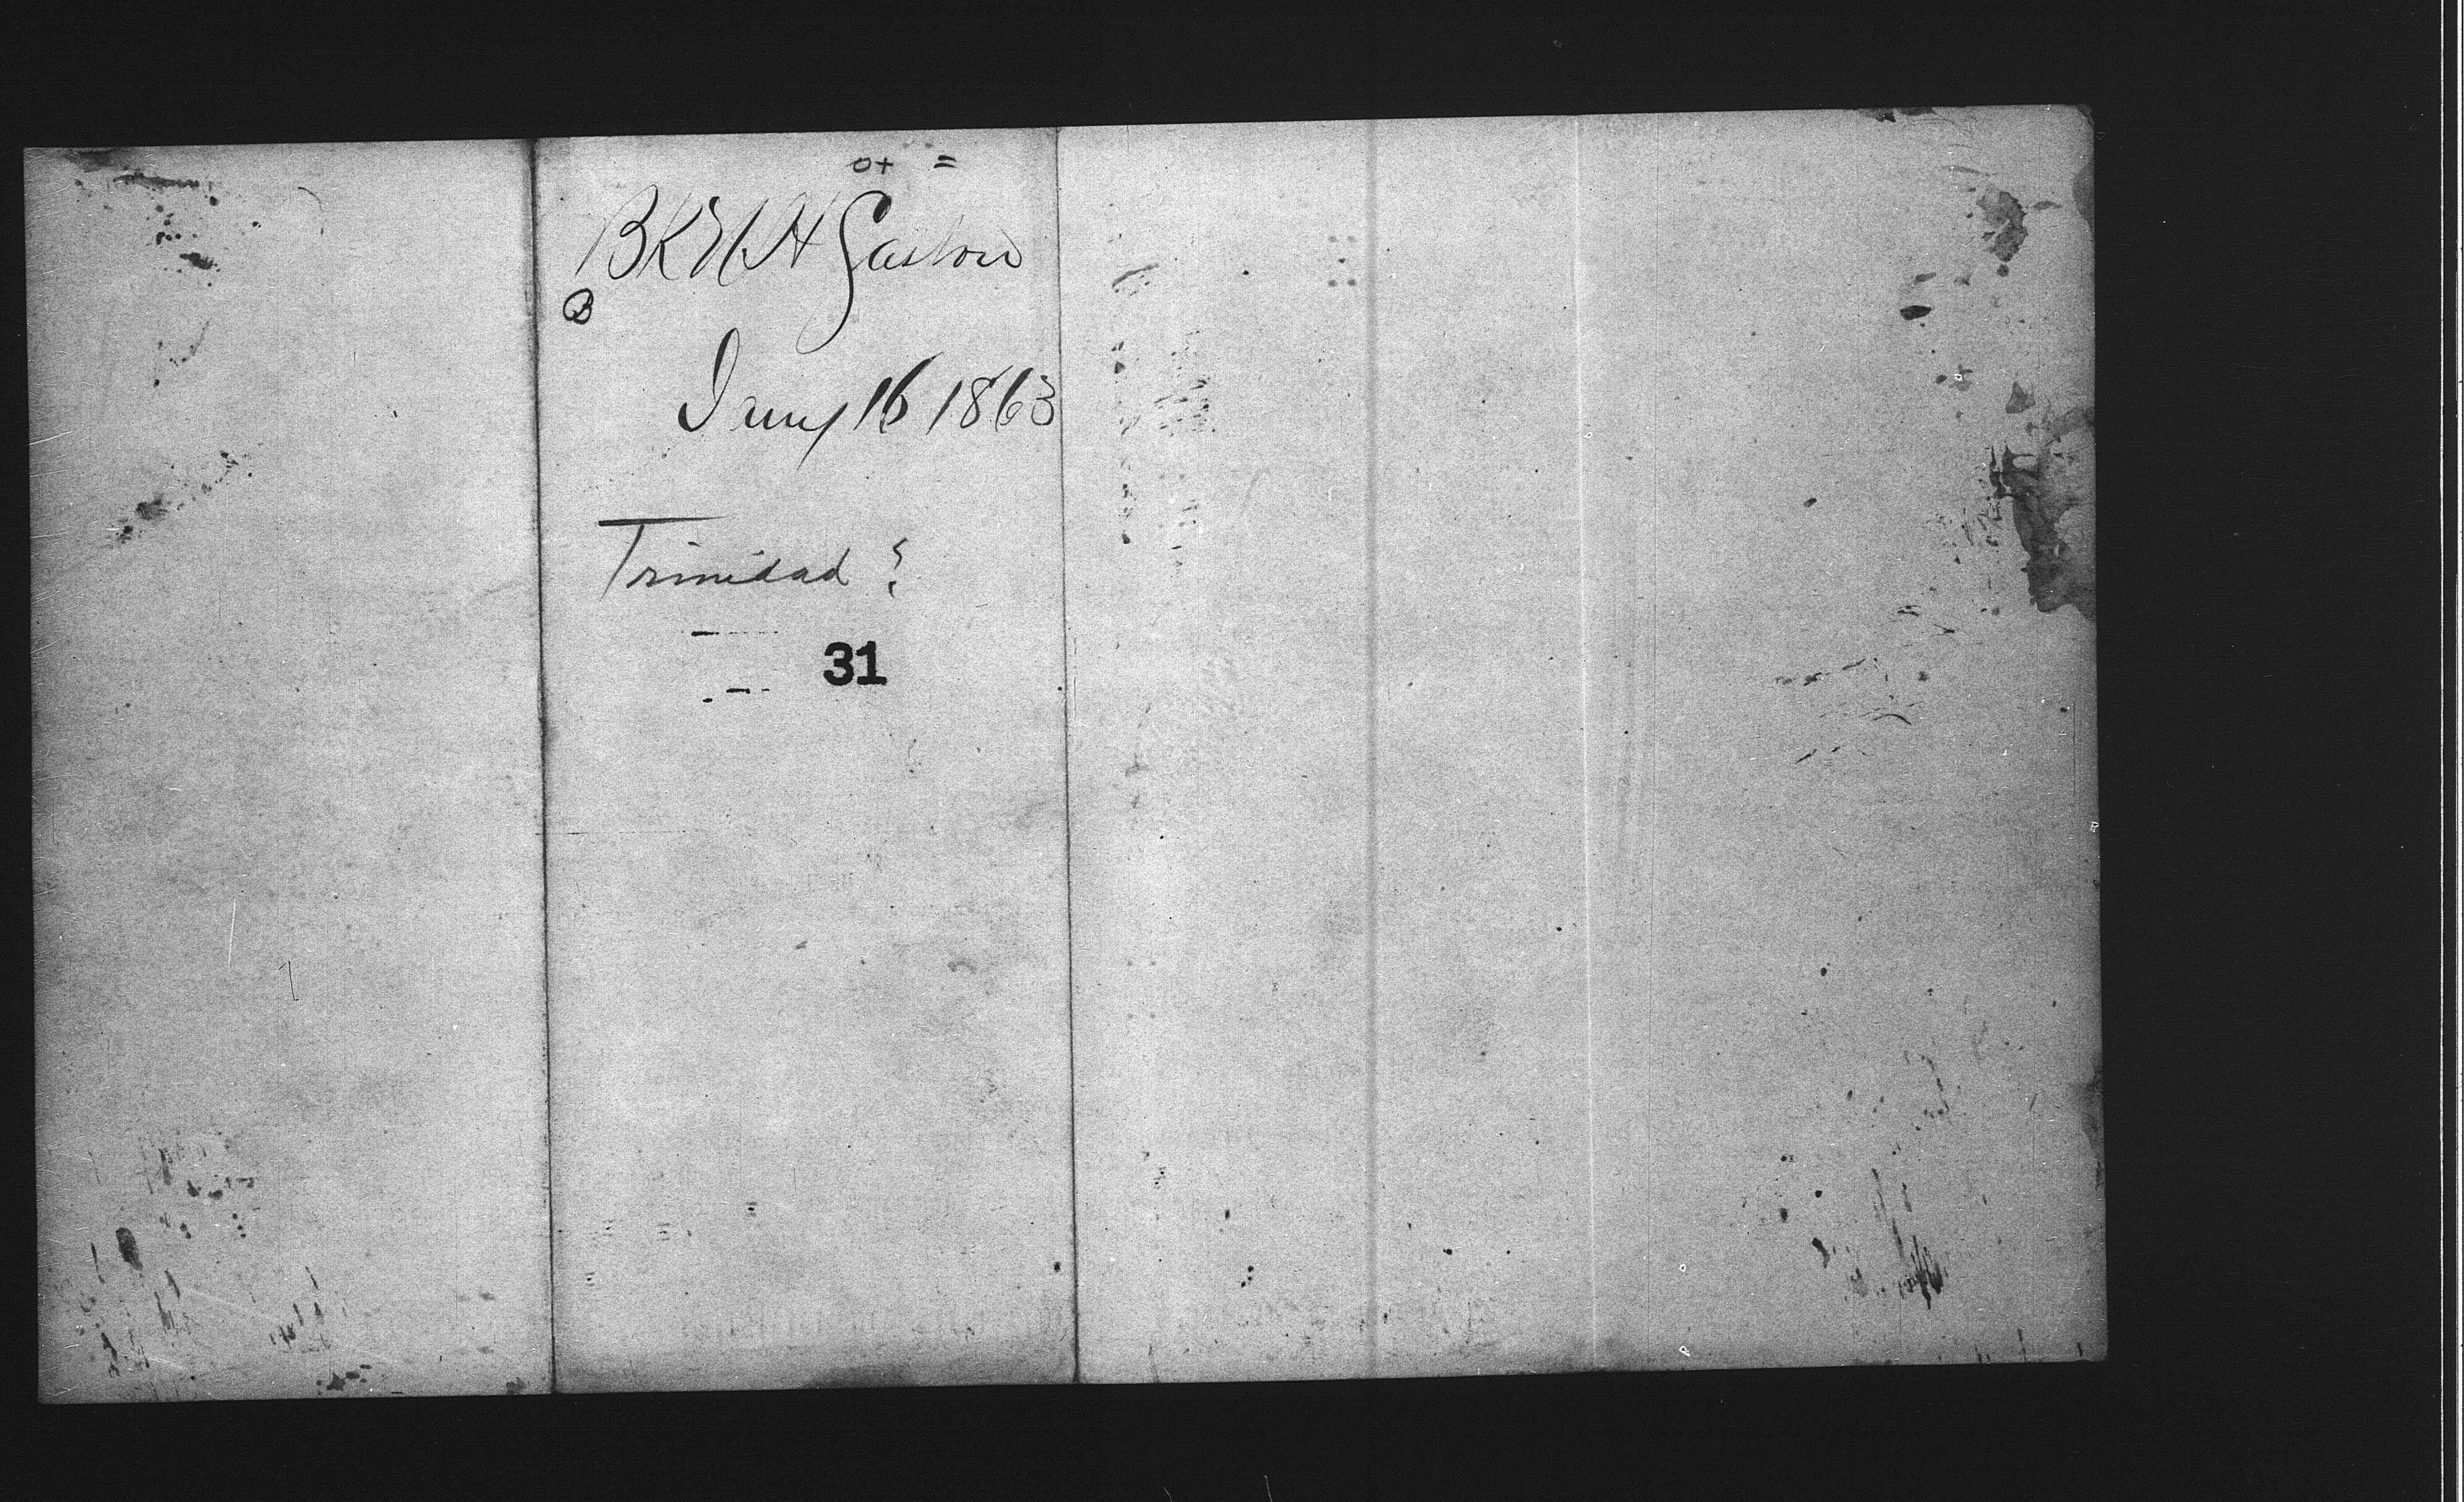 o+ =
BK & W H Gaston
B
Jany 16 1863
Trinidad ?
31